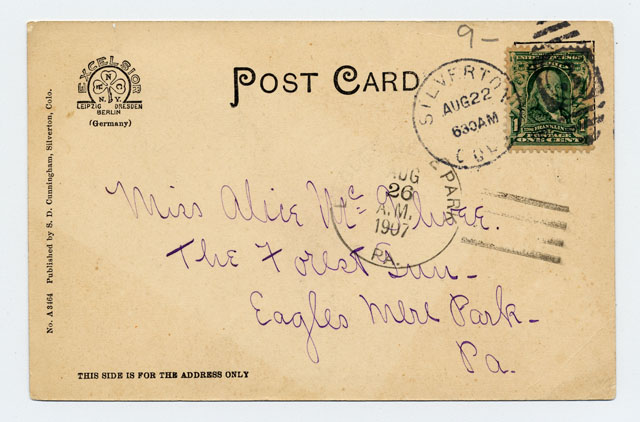 9-
EXCELSIOR
N
N.Y.
LEIPZIG DRESDEN
BERLIN
(Germany)
POST CARD
SILVERTON
AUG 22
630AM
COL
FRANKLIN
POSTAGE
ONE CENT
AUG
26
A.M.
1907
PA.
PARK
Miss Alice
The Forest Inn-
Eagles Mere Park-
Pa.
No. A 3464 Published by S. D. Cunningham, Silverton, Colo.
THIS SIDE IS FOR THE ADDRESS ONLY